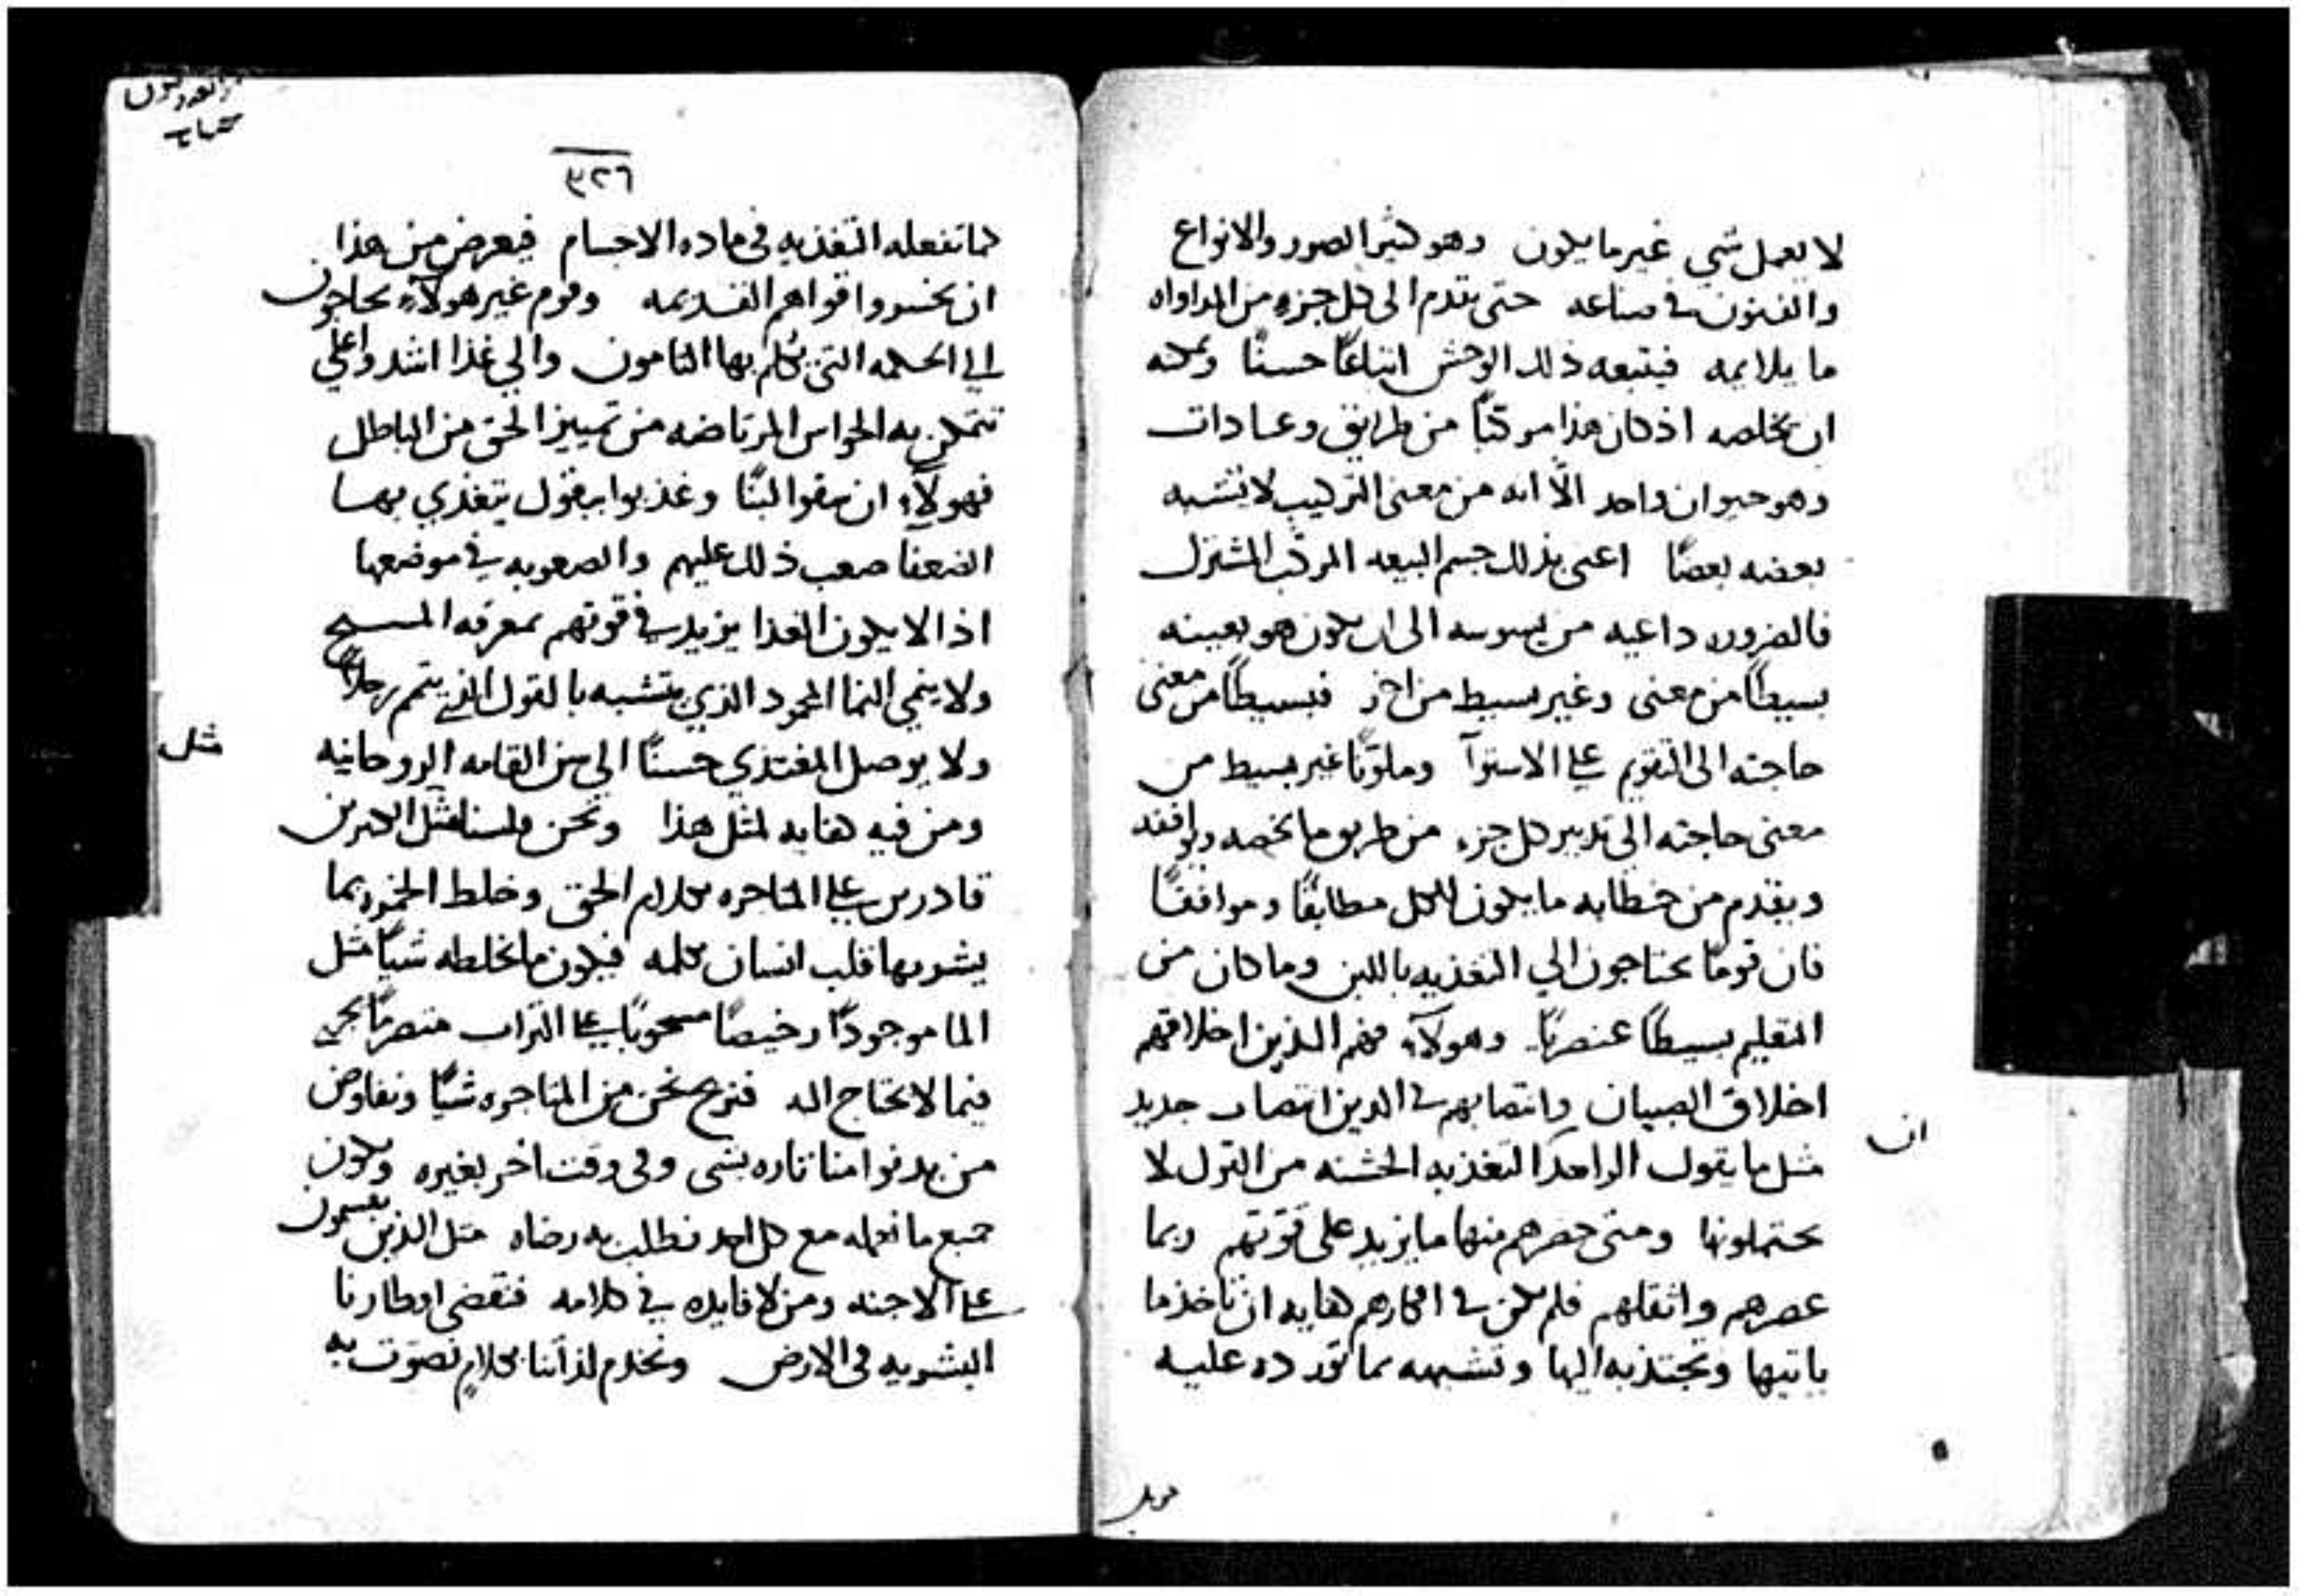 لا يعمل شي غير ما يكون وهو كثير الصور والانواع
والفنون في صناعه حتى يقدم الى كل جزء من المداواه
ما يلايمه فيتبعه ذلك الوحش اتباعًا حسنًا ويمكنه
ان يخلصه اذ كان هذا مركبًا من طرايق وعادات
وهو حيوان واحد الّا انه من معنى التركيب لا يشبه
بعضه بعضًا اعنى بذلك جسم البيعه المركب المشترك
فالضروره داعيه من يسوسه الى ان يكون هو بعينه
بسيطًا من معنى وغير بسيط من اخر فبسيطًا من معنى
حاجته الى التقويم على الاستوآ وملونًا غير بسيط من
معنى حاجته الى تدبير كل جزء من طريق ما يخصه ويوافقه
ويقدم من خطابه ما يكون للكل مطابقًا وموافقًا
فان قومًا يحتاجون الي التغذيه باللبن وما كان من
التعليم بسيطًا عنصريًا وهولآء فهم الذين اخلاقهم
اخلاق الصبيان وانتصابهم في الدين انتصاب جديد
ان
مثل ما يقول الواحد التغذيه الخشنه من القول لا
يحتملونها ومتى حضرهم منها ما يزيد على قوتهم ربما
عصرهم واثقلهم فلم يكن في افكارهم كفايه ان تاخذ ما
ياتيها وتجتذبه اليها وتشبهه بما تورده عليه
٣٢٦
كما تفعله التغذيه في ماده الاجسام فيعرض من هذا
ان يخسروا قواهم القديمه وقوم غير هولآء يحتاجون
الي الحكمه التي يتكلم بها التامون والي غذا اشد واعلي
تتمكن به الحواس المرتاضه من تمييز الحق من الباطل
فهولآء ان سقوا لبنًا وغذيوا ببقول يتغذي بها
الضعفا صعب ذلك عليهم والصعوبه في موضعها
اذا لا يكون الغذا يزيد في قوتهم بمعرفه المسيح
ولا ينمي النما المحمود الذي يتشبه بالقول الذي يتم رجلاً
ولا يوصل المغتذي حسنًا الي من القامه الروحانيه
مثل
ومن فيه كفايه لمثل هذا ونحن فلسنا مثل الكثيرين
قادرين على المتاجره بكلام الحق وخلط الخمره بما
يشوبها قلب انسان بكلمه فيكون ما يخلطه شيًا مثل
الما موجودًا رخيصًا مسحوبًا على التراب منصرفًا يجري
فيما لا يحتاج اليه فنربح نحن من المتاجره شيًا ونفاوض
من يدنوا منا تاره بشى وفي وقت اخر بغيره ويكون
جميع ما نفعله مع كل احد نطلب به رضاه مثل الذين يقسمون
على الاجنه ومن لا فايده في كلامه فنقضى اوطارنا
البشريه في الارض ونخدم لذاتنا بكلام نصوت به